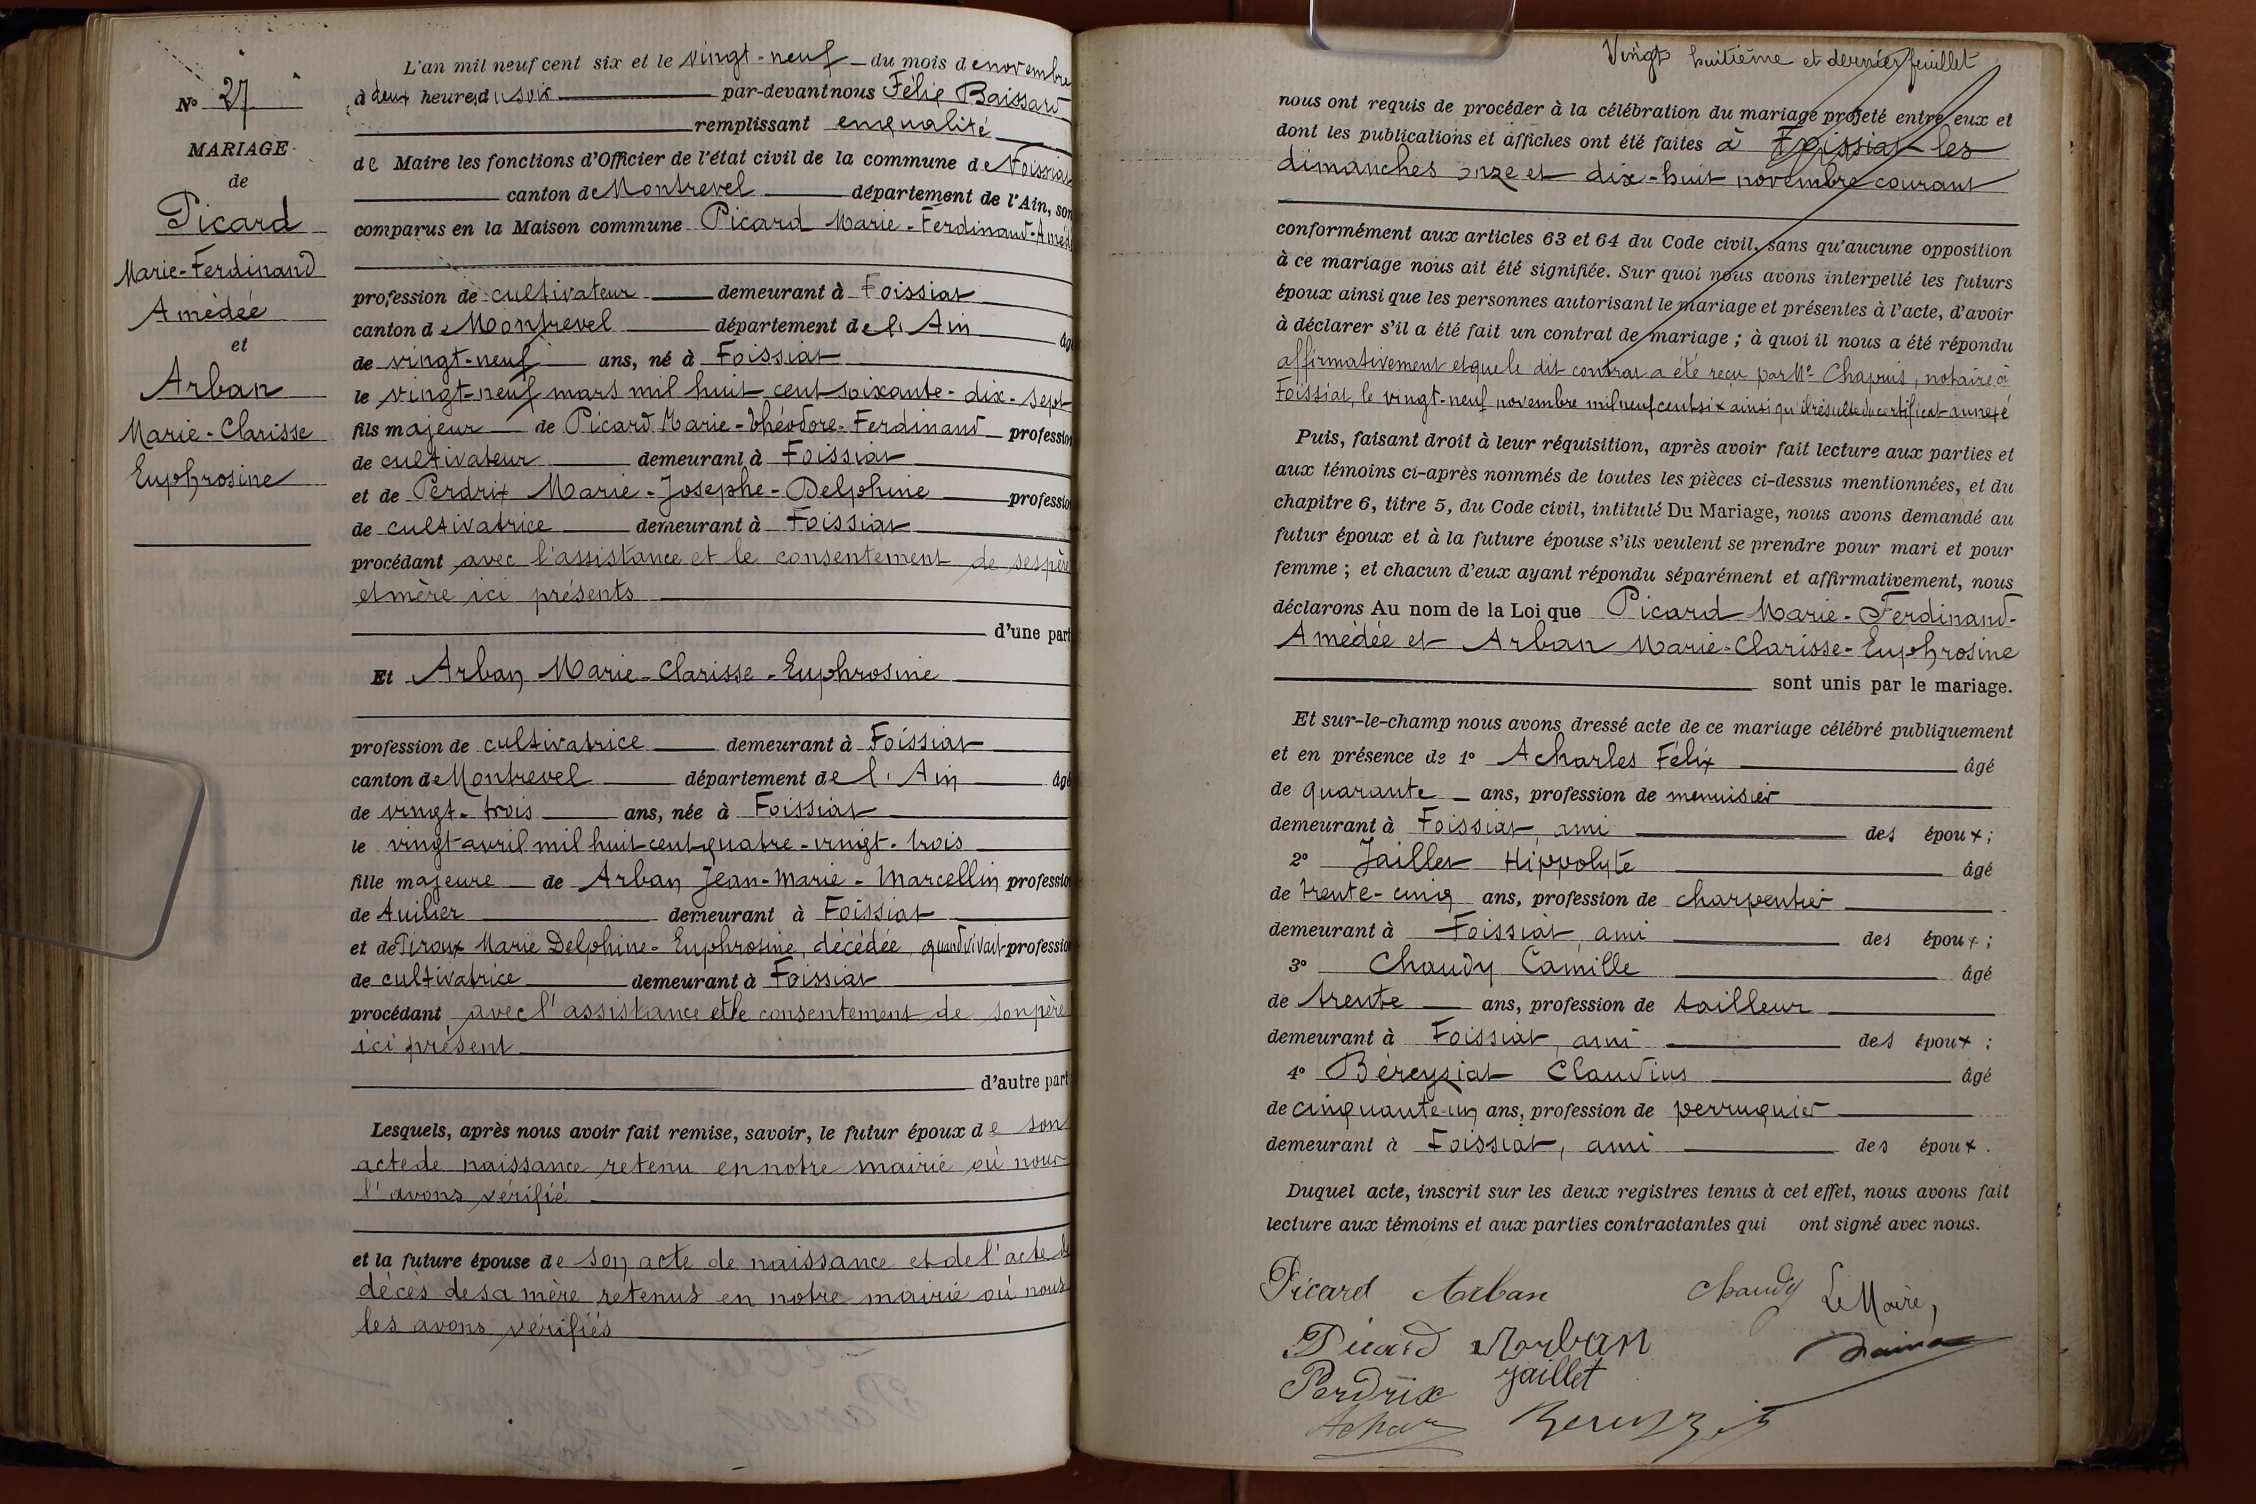 N° 27
MARIAGE
de
Picard
Marie-Ferdinand
Amédée
et
Arban
Marie-Clarisse
Euphrosine
L'an mil neuf cent six et le vingt-neuf du mois de novembre
à deux heures du soir par-devant nous Félix
remplissant en qualité
de Maire les fonctions d'Officier de l'état civil de la commune de Foissiat
canton de Montrevel département de l'Ain, son
comparus en la Maison commune Picard Marie-Ferdinand-Améd
profession de cultivateur demeurant à Foissiat
canton de Montrevel département de l'Ain âgé
de vingt-neuf ans, né à Foissiat
le vingt-neuf mars mil huit cent soixante-dix-sept
fils majeur de Picard Marie-Théodore-Ferdinand profession
de cultivateur demeurant à Foissiat
et de Perdrix Marie-Josephe-Delphine profession
de cultivatrice demeurant à Foissiat
procédant avec l'assistance et le consentement de ses père
et mère ici présents
d'une part
Et Arban Marie-Clarisse-Euphrosine
profession de cultivatrice demeurant à Foissiat
canton de Montrevel département de l'Ain âgé
de vingt-trois ans, née à Foissiat
le vingt avril mil huit cent quatre-vingt-trois
fille majeure de Arban Jean-Marie-Marcellin profession
de tuilier demeurant à Foissiat
et de Piroux Marie Delphine-Euphrosine, décédée, quand vivait profession
de cultivatrice demeurant à Foissiat
procédant avec l'assistance et le consentement de son père
ici présent
d'autre part
Lesquels, après nous avoir fait remise, savoir, le futur époux de son
acte de naissance retenu en notre mairie où nous
l'avons vérifié
et la future épouse de son acte de naissance et de l'acte de
décès de sa mère retenus en notre mairie où nous
les avons vérifiés
Vingt huitième et dernier feuillet
nous ont requis de procéder à la célébration du mariage projeté entre eux et
dont les publications et affiches ont été faites à Foissiat les
dimanches onze et dix-huit novembre courant
conformément aux articles 63 et 64 du Code civil, sans qu'aucune opposition
à ce mariage nous ait été signifiée. Sur quoi nous avons interpellé les futurs
époux ainsi que les personnes autorisant le mariage et présentes à l'acte, d'avoir
à déclarer s'il a été fait un contrat de mariage ; à quoi il nous a été répondu
affirmativement et que le dit contrat a été reçu par Me Chapuis, notaire à
Foissiat, le vingt-neuf novembre mil neuf cent six ainsi qu'il résulte du certificat annexé
Puis, faisant droit à leur réquisition, après avoir fait lecture aux parties et
aux témoins ci-après nommés de toutes les pièces ci-dessus mentionnées, et du
chapitre 6, titre 5, du Code civil, intitulé Du Mariage, nous avons demandé au
futur époux et à la future épouse s'ils veulent se prendre pour mari et pour
femme ; et chacun d'eux ayant répondu séparément et affirmativement, nous
déclarons Au nom de la Loi que Picard Marie-Ferdinand-
Amédée et Arban Marie-Clarisse-Euphrosine
sont unis par le mariage.
Et sur-le-champ nous avons dressé acte de ce mariage célébré publiquement
et en présence de 1° Acharles Félix âgé
de quarante ans, profession de menuisier
demeurant à Foissiat, ami des époux ;
2° Jaillet Hippolyte âgé
de trente-cinq ans, profession de charpentier
demeurant à Foissiat, ami des époux ;
3° Chaudy Camille âgé
de trente ans, profession de tailleur
demeurant à Foissiat, ami des époux ;
4° Béreyziat Claudius âgé
de cinquante-un ans, profession de perruquier
demeurant à Foissiat, ami des époux.
Duquel acte, inscrit sur les deux registres tenus à cet effet, nous avons fait
lecture aux témoins et aux parties contractantes qui ont signé avec nous.
Picard Arban Chaudy Le Maire,
Picard Marban
Perdrix Jaillet